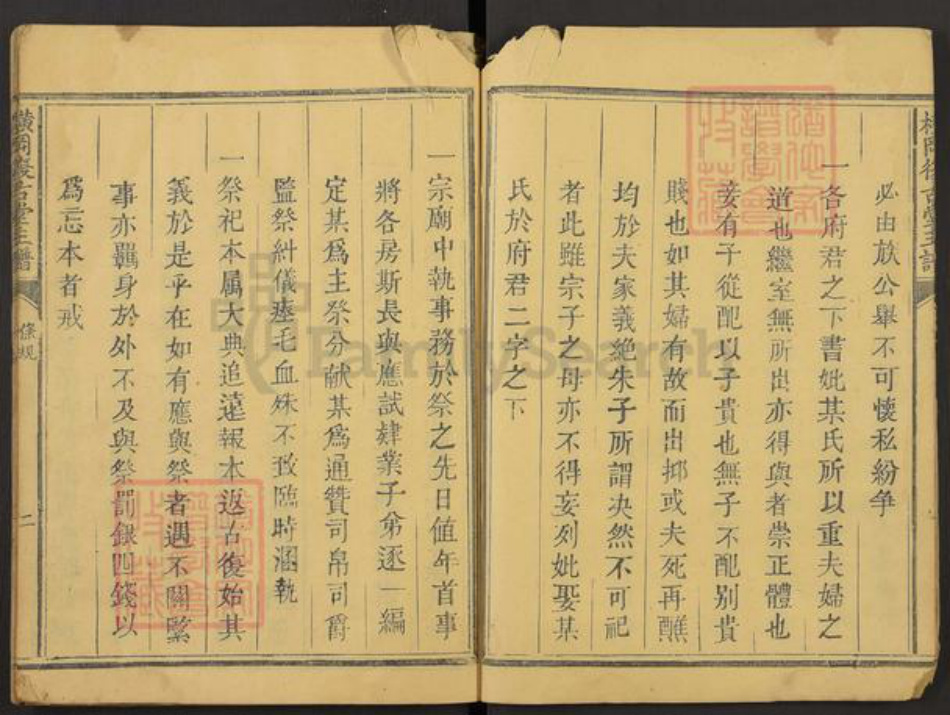 必由族公舉不可懷私紛爭
一各府君之下書妣某氏所以重夫婦之
道也繼室無所出亦得與者崇正體也
妾有子從配以子貴也無子不配别貴
賤也如其婦有故而出抑或夫死再醮
均於夫家義絶朱子所謂决然不可祀
者此雖宗子之母亦不得妄列妣娶某
氏於府君二字之下
一宗廟中執事務於祭之先日値年首事
將各房斯長與應試肄業子弟逐一編
定某爲主祭分献某爲通贊司帛司爵
監祭糾儀瘞毛血殊不致臨時溷執
一祭祀本属大典追遠報本返古復始其
義於是乎在如有應與祭者遇不關緊
事亦羈身於外不及與祭罰銀四錢以
爲忘本者戒
條規
二
FamilySearch